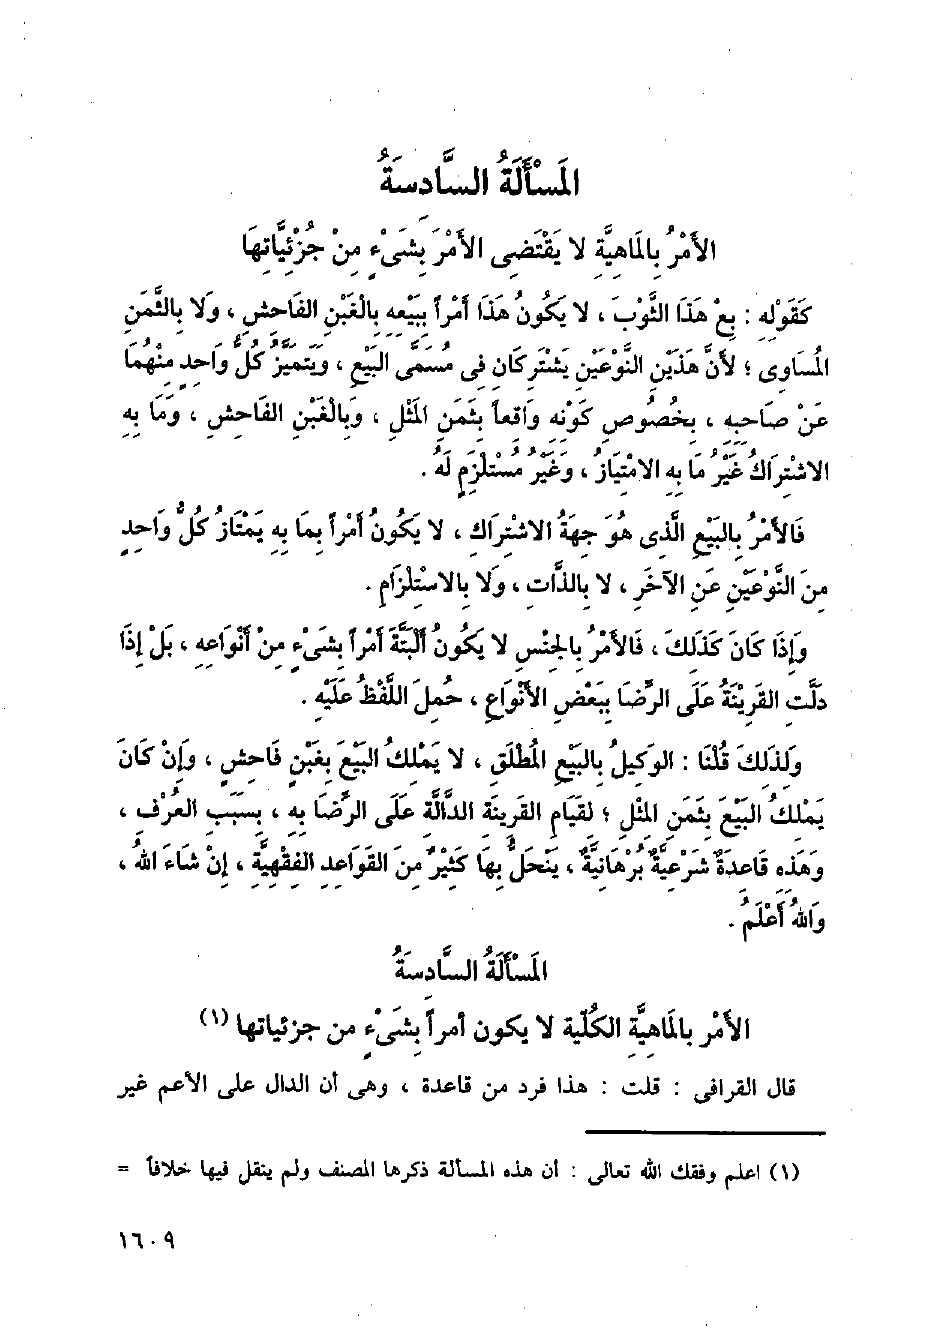 المَسْأَلَةُ السَّادِسَةُ
الأَمْرُ بِالمَاهِيَّةِ لا يَقْتَضِى الأَمْرَ بِشَىْءٍ مِنْ جُزْئِيَّاتِهَا
كَقَوْلِهِ : بِعْ هَذَا الثَّوْبَ ، لا يَكُونُ هَذَا أَمْراً بِبَيْعِهِ بِالْغَبْنِ الفَاحِشِ ، وَلا بِالثَّمَنِ
المُسَاوِى ؛ لأَنَّ هَذَيْنِ النَّوْعَيْنِ يَشْتَرِكَانِ فِى مُسَمَّى البَيْعِ ، وَيَتَمَيَّزُ كُلُّ وَاحِدٍ مِنْهُمَا
عَنْ صَاحِبِهِ ، بِخُصُوصِ كَوْنِهِ وَاقِعاً بِثَمَنِ المِثْلِ ، وَبِالْغَبْنِ الفَاحِشِ ، وَمَا بِهِ
الاشْتِرَاكُ غَيْرُ مَا بِهِ الامْتِيَازُ ، وَغَيْرُ مُسْتَلْزِمٍ لَهُ .
فَالأَمْرُ بِالبَيْعِ الَّذِى هُوَ جِهَةُ الاشْتِرَاكِ ، لا يَكُونُ أَمْراً بِمَا بِهِ يَمْتَازُ كُلُّ وَاحِدٍ
مِنَ النَّوْعَيْنِ عَنِ الآخَرِ ، لا بِالذَّاتِ ، وَلا بِالاسْتِلْزَامِ .
وَإِذَا كَانَ كَذَلِكَ ، فَالأَمْرُ بِالجِنْسِ لا يَكُونُ أَلْبَتَّةَ أَمْراً بِشَىْءٍ مِنْ أَنْوَاعِهِ ، بَلْ إِذَا
دَلَّتِ القَرِينَةُ عَلَى الرِّضَا بِبَعْضِ الأَنْوَاعِ ، حُمِلَ اللَّفْظُ عَلَيْهِ .
وَلِذَلِكَ قُلْنَا : الوَكِيلُ بِالبَيْعِ المُطْلَقِ ، لا يَمْلِكُ البَيْعَ بِغَبْنٍ فَاحِشٍ ، وَإِنْ كَانَ
يَمْلِكُ البَيْعَ بِثَمَنِ المِثْلِ ؛ لِقِيَامِ القَرِينَةِ الدَّالَّةِ عَلَى الرِّضَا بِهِ ، بِسَبَبِ العُرْفِ ،
وَهَذِهِ قَاعِدَةٌ شَرْعِيَّةٌ بُرْهَانِيَّةٌ ، يَنْحَلُّ بِهَا كَثِيرٌ مِنَ القَوَاعِدِ الفِقْهِيَّةِ ، إِنْ شَاءَ اللهُ ،
وَاللهُ أَعْلَمُ .
المَسْأَلَةُ السَّادِسَةُ
الأَمْرِ بِالمَاهِيَّةِ الكُلِّيةِ لا يكون أمراً بِشَىْءٍ من جزئياتها (١)
قال القرافى : قلت : هذا فرد من قاعدة ، وهى أن الدال على الأعم غير
(١) اعلم وفقك الله تعالى : أن هذه المسألة ذكرها المصنف ولم ينقل فيها خلافاً =
١٦٠٩